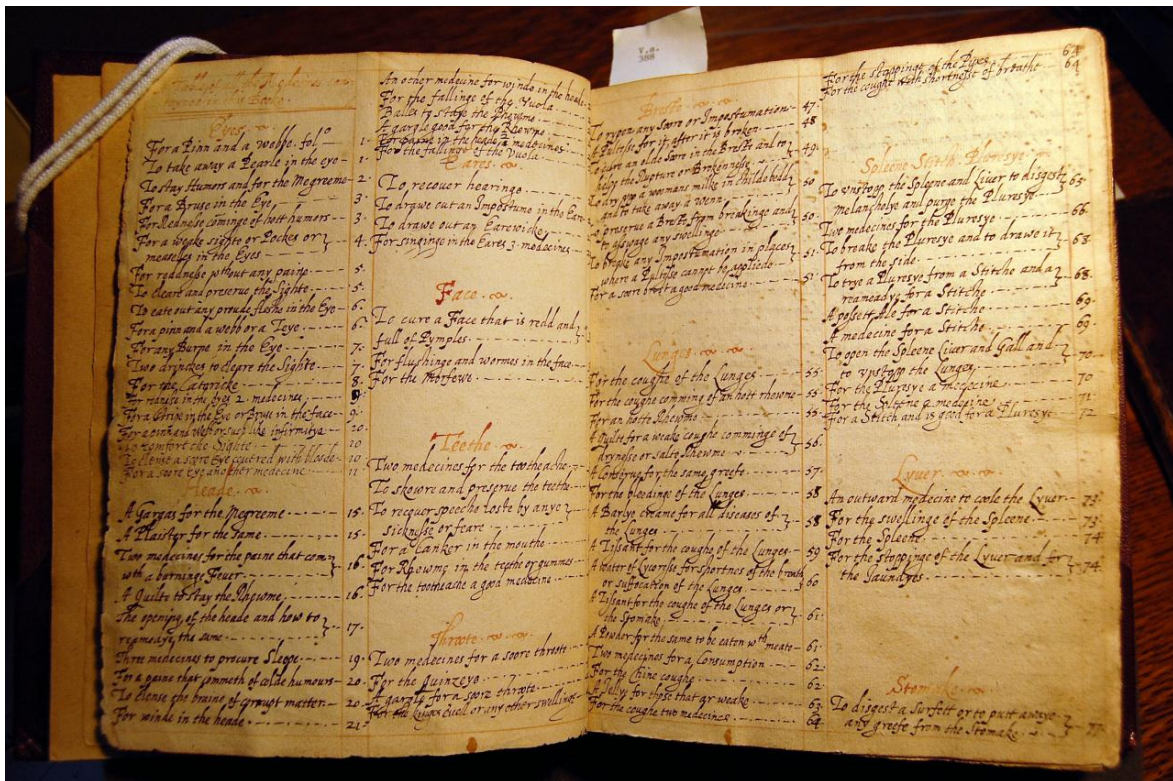 V.a.
388
Eyes
For a Pinn and a webbe. fol^o 1.
To take away a Pearle in the eye 1.
To stay Humors and for the Megreeme 2.
For a Bruse in the Eye 3.
For Rednesse cominge of hott humors 3.
For a weake sighte or Pockes or
measelles in the Eyes 4.
For readnesse w^thout any paine 5.
To cleare and preserve the Sighte 5.
To eate out any proude fleshe in the Eye 6.
For a pinn and a webb or a Teye 6.
For any Burne in the Eye 7.
Two drinckes to cleare the Sighte 7.
For the Catericke 8.
For rednese in the Eyes 2 medecines 9.
For a Strixe in the Eye or Bruse in the face 9.
For a pinn and Webb or such like infirmitye 10.
To comfort the Sighte 10
To clense a soore Eye covered with bloode 10.
For a soore eye another medecine 11
Heade.
A Gargas for the Megreeme 15.
A Plaister for the Same 15.
Two medecines for the paine that com
wth a burninge Feuer 16.
A Quilte to Stay the Rhewme 16.
The openinge of the heade and how to
remedye the same 17.
Three medecines to procure Sleepe 19.
For a paine that commeth of colde humours 20.
To clense the braine of corrupt matter 20.
For winde in the heade 21.
An other medecine for winde in the heade
For the fallinge of the Vuola
Balles to staye the Rhewme
A gargle good for the Rhewme
For paine in the heade 2 medecines
For the fallinge of the Vuola
Eares
To recover hearinge
To drawe out an Impostume in the Eare
To drawe out an Earewicke
For singinge in the Eares 3 medecines
Face.
To cure a Face that is redd and
full of Pymples
For flushinge and wormes in the face
For the Morfewe
Teethe
Two medecines for the toothache
To skowre and preserve the teethe
To recouer speeche loste by anye
sicknesse or feare
For a Canker in the mouthe
For Rhewme in the teethe or gummes
For the tootheache a good medecine
Throte
Two medecines for a soore throte
For the Quinzeye
A gargle for a soore throte
For the Kinges euell or any other swellinge
Breste
To rypen any soore or Impostumation 47.
A Pultesse for it after it is broken 48
To cure an olde Sore in the Breste and to
helpe the Rupture or Brokennesse 49.
To dry upp a womans milke in childebedd
and to take away a Wenn 50
To preserve a Breste from breakinge and
to asswage any swellinge 50.
To breake any Impostumation in places
where a Pultesse cannot be appliede 51.
For a soore brest a good medecine 51
Lungus
For the coughe of the Lunges 55.
For the coughe comming of an hott rhewme 55
For an hotte Rhewme 55.
A Quilte for a weake coughe comminge of
drynesse or salte Rhewme 56.
A Conserue for the same greefe 57.
For the bleedinge of the Lunges 58
A Barlye Creame for all diseases of
the Lunges 58
A Tissant for the coughe of the Lunges 59
A Water of Lycorise for shortnes of the breath
or suffocation of the Lunges 60
A Tissant for the coughe of the Lunges or
the Stomake 61.
A Powder for the same to be eaten w^th meate 61.
Two medecines for a Consumption 62.
For the Chine coughe 62.
A Jellye for those that ar weake 63.
For the coughe two medecines 64
For the stoppinge of the Pipes 64
For the coughe with shortnesse of breathe 64
Spleene Stitch Pluresye
To vnstopp the Spleene and Liver to disgest
Melancholye and purge the Pluresye 65.
Two medecines for the Pluresye 66.
To breake the Pluresye and to drawe it
from the side 68.
To trye a Pluresye from a Stitche and a
reameadye for a Stitche 68.
A posett Ale for a Stitche 69.
A medecine for a Stitche 69.
To open the Spleene Liuer and Gall and
to vnstopp the Lunges 70
For the Pluresye a medecine 70
For the Spleene a medecine 71.
For a Stitch and is good for a Pluresye 72
Lyuer
An outward medecine to coole the Lyuer 73
For the swellinge of the Spleene 73
For the Spleene 74
For the Stoppinge of the Lyuer and for
the Jaundyes 74.
Stomake
To disgest a Surfett or to putt awaye
any greefe from the Stomake 77.